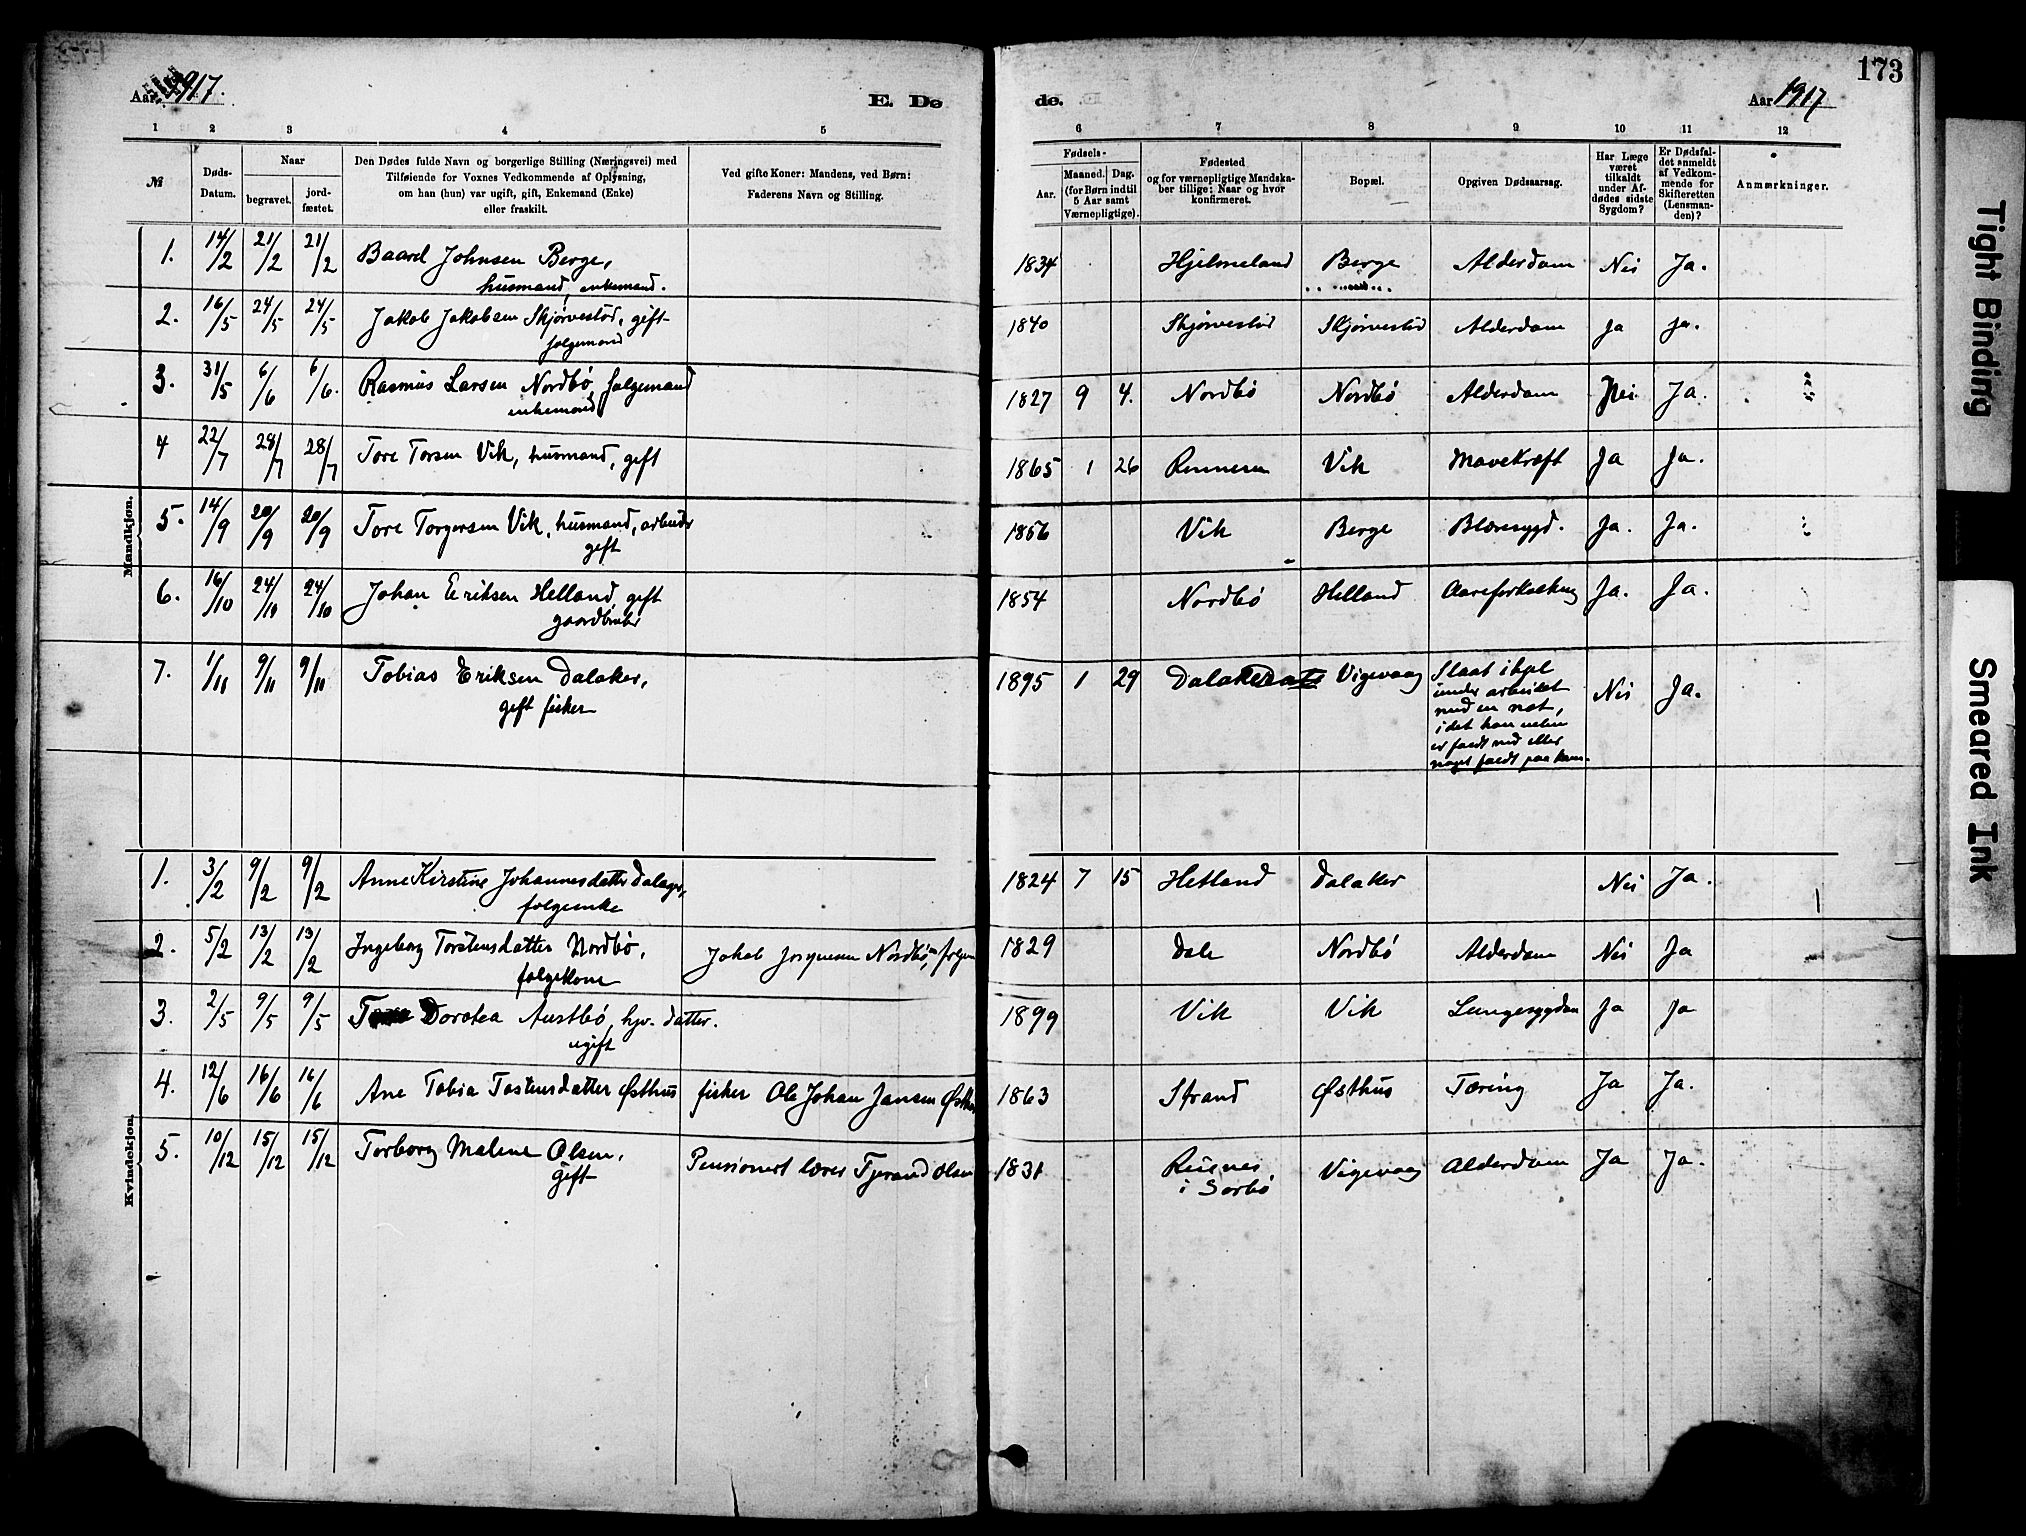 173
Aar 1917.
E. Dø
de.
Aar 1917
1 2 3 4 5 6 7 8 9 10 11 12
№
Døds-
Datum.
Naar
begravet.
jord-
fæstet.
Den Dødes fulde Navn og borgerlige Stilling (Næringsvei) med
Tilføiende for Voxnes Vedkommende af Oplysning,
om han (hun) var ugift, gift, Enkemand (Enke)
eller fraskilt.
Ved gifte Koner: Mandens, ved Børn:
Faderens Navn og Stilling.
Fødsels-
Aar.
Maaned. Dag.
(for Børn indtil
5 Aar samt
Værnepligtige).
Fødested
og for værnepligtige Mandska-
ber tillige: Naar og hvor
konfirmeret.
Bopæl.
Opgiven Dødsaarsag.
Har Læge
været
tilkaldt
under Af-
dødes sidste
Sygdom?
Er Dødsfal-
det anmeldt
af Vedkom-
mende for
Skifteretten
(Lensman-
den)?
Anmærkninger.
Mandkjøn.
1. 14/2 21/2 21/2 Baard Johnsen Berge, 1834 Hjelmeland Berge Alderdom Nei Ja.
husmand, enkemand.
2. 16/5 24/5 24/5 Jakob Jakobsen Skjørvestød, gift 1840 Skjørvestød Skjørvestød Alderdom Ja Ja.
folgemand
3. 31/5 6/6 6/6. Rasmus Larsen Nordbø, folgemand 1827 9 4. Nordbø Nordbø Alderdom Nei Ja.
enkemand
4 22/7 28/7 28/7 Tore Torsen Vik, husmand, gift 1865 1 26 Rennesø Vik Mavekræft Ja Ja.
5. 14/9 20/9 20/9 Tore Torgersen Vik, husmand, arbeider 1856 Vik Berge Blæresygd. Ja. Ja.
gift
6. 16/10 24/10 24/10 Johan Eriksen Helland, gift 1854 Nordbø Helland Aareforkalkning Ja. Ja.
gaardbruker
7. 1/11 9/11 9/11 Tobias Eriksen Dalaker, 1895 1 29 Dalaker Vigevaag Slaat ihjel
gift fisker
under arbeidet
med en not,
idet han enten
er faldt ned eller
noget faldt paa ham.
Nei Ja.
Kvindekjøn.
1. 3/2 9/2 9/2 Anne Kirstine Johannesdatter Dalager, 1824 7 15 Hetland Dalaker Nei Ja.
folgeenke
2. 5/2 13/2 13/2 Ingeborg Torstensdatter Nordbø, Jakob Nordbø, 1829 Dale Nordbø Alderdom Nei Ja
folgekone
3. 2/5 9/5 9/5 Dorotea Austbø, hjv. datter. 1899 Vik Vik Lungesygdom Ja Ja
ugift
4. 12/6 16/6 16/6 Ane Tobia Tostensdatter Østhus fisker Ole Johan Jansen Østhus 1863 Strand Østhus Tæring Ja Ja.
5. 10/12 15/12 15/12 Torborg Malene Olsen, Pensionert lærer Tjerand Olsen 1831 Reianes Vigevaag Alderdom Ja Ja.
gift
i Sørbø
Tight Binding
Smeared Ink